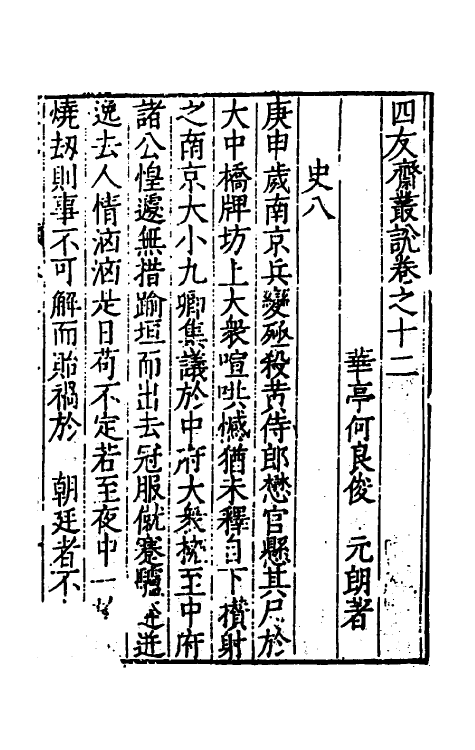 四友齋叢說卷之十二
華亭何良俊 元朗著
史八
庚申歲南京兵變殛殺黃侍郎懋官懸其尸於
大中橋牌坊上大衆喧哄憾猶未釋自下攢射
之南京大小九卿集議於中府大衆擁至中府
諸公惶遽無措踰垣而出去冠服僦蹇驢逃
逸去人情洶洶是日苟不定若至夜中一
燒刼則事不可解而貽禍於 朝廷者不